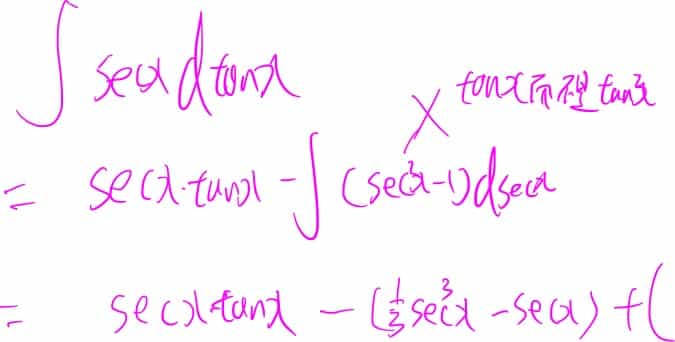 ∫ secx d tanx
× tanx而裡 tan²x
= secx·tanx - ∫ (sec²x-1) dsecx
= secx·tanx - (1/3 sec³x - secx) + C